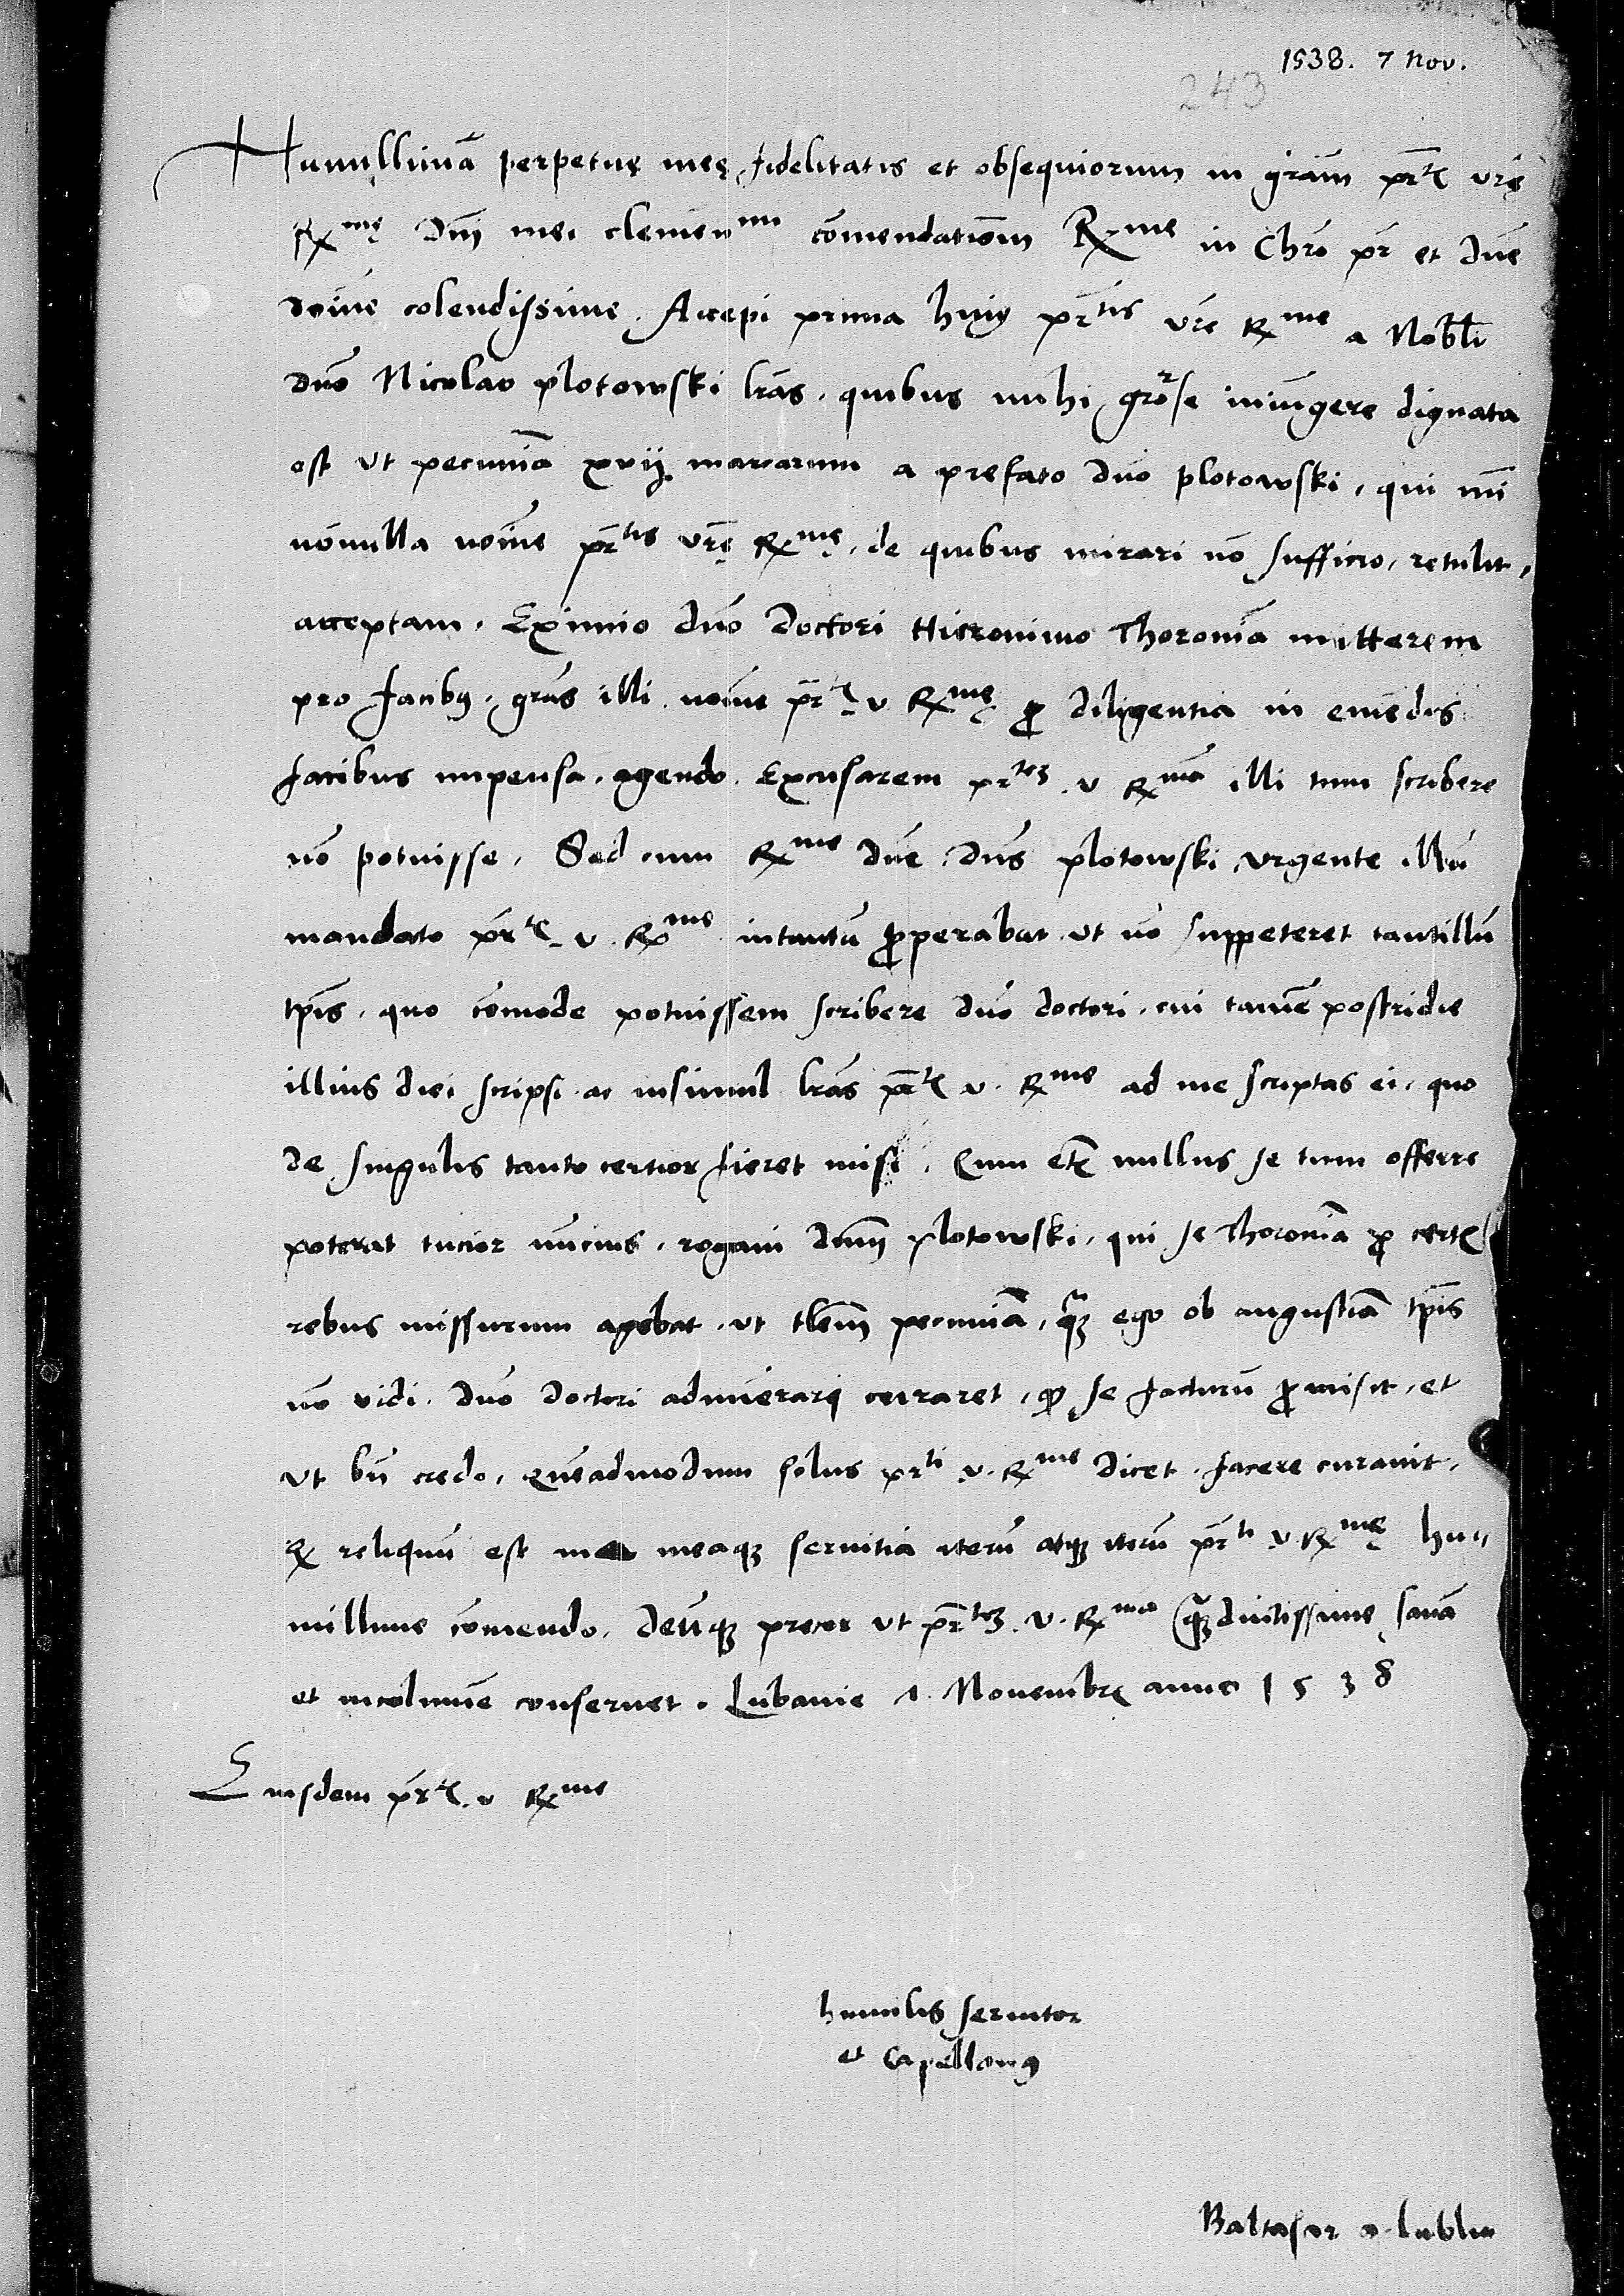 1538. 7 Nov.
243
Humillimā perpetuę meę fidelitatis et obsequiorum in grām pr̄tę vrę
Rxmę Dnj mei clemenmi cōmendationem Rxme in Chro pr et dne
domine colendissime. Accepi prima huius pr̄tis vre Rxme a Nobli
dno Nicolao plotowski lras, quibus mihi grose iniungere dignata
est ut pecuniā xvij marcarum a prefato dno plotowski, qui mi
nōnulla noīe pr̄tis vrę Rxmę, de quibus mirari nō sufficio, retulit,
acceptam. Eximio dno Doctori Hieronimo Thoroniā mitterem
pro facibus, gras illi noīe pr̄tis v Rxmę pro diligentia in emēdis
facibus impensa, agendo. Excusarem prtem v Rxmā illi tum scribere
nō potuisse. Sed cum Rxme dne, dns plotowski, urgente illū
mandato pr̄tis v. Rxme intantū properabat ut nō suppeteret tantillū
tpis, quo cōmode potuissem scribere dno doctori, cui tamē postridie
illius diei scripsi ac insimul lras pr̄tis v. Rxme ad me scriptas ei, quo
de singulis tanto certior fieret misi. Cum etē nullus se tum offerre
poterat tucior nuncius, rogavi dnm plotowski, qui se Thoroniā pro certis
rebus missurum agebat, ut tlem pecuniā, quam ego ob angustiā tpis
nō vidi, dno Doctori adnumerari curaret, quod se facturū promisit, et
ut bn credo, quēadmodum solus prti v. Rxme dicet, facere curavit.
Qd reliquū est me meaque servitia iterū atque iterū pr̄ti v. Rxmę hu-
millime cōmendo. Deūque precor ut pr̄tem v. Rxma quam diutissime sanā
et incolumē conservet. Lubavie 1. Novembris anno 1538
Eiusdem pr̄tis v Rxme
humilis servitor
et Capellanus
Baltasar a lublin